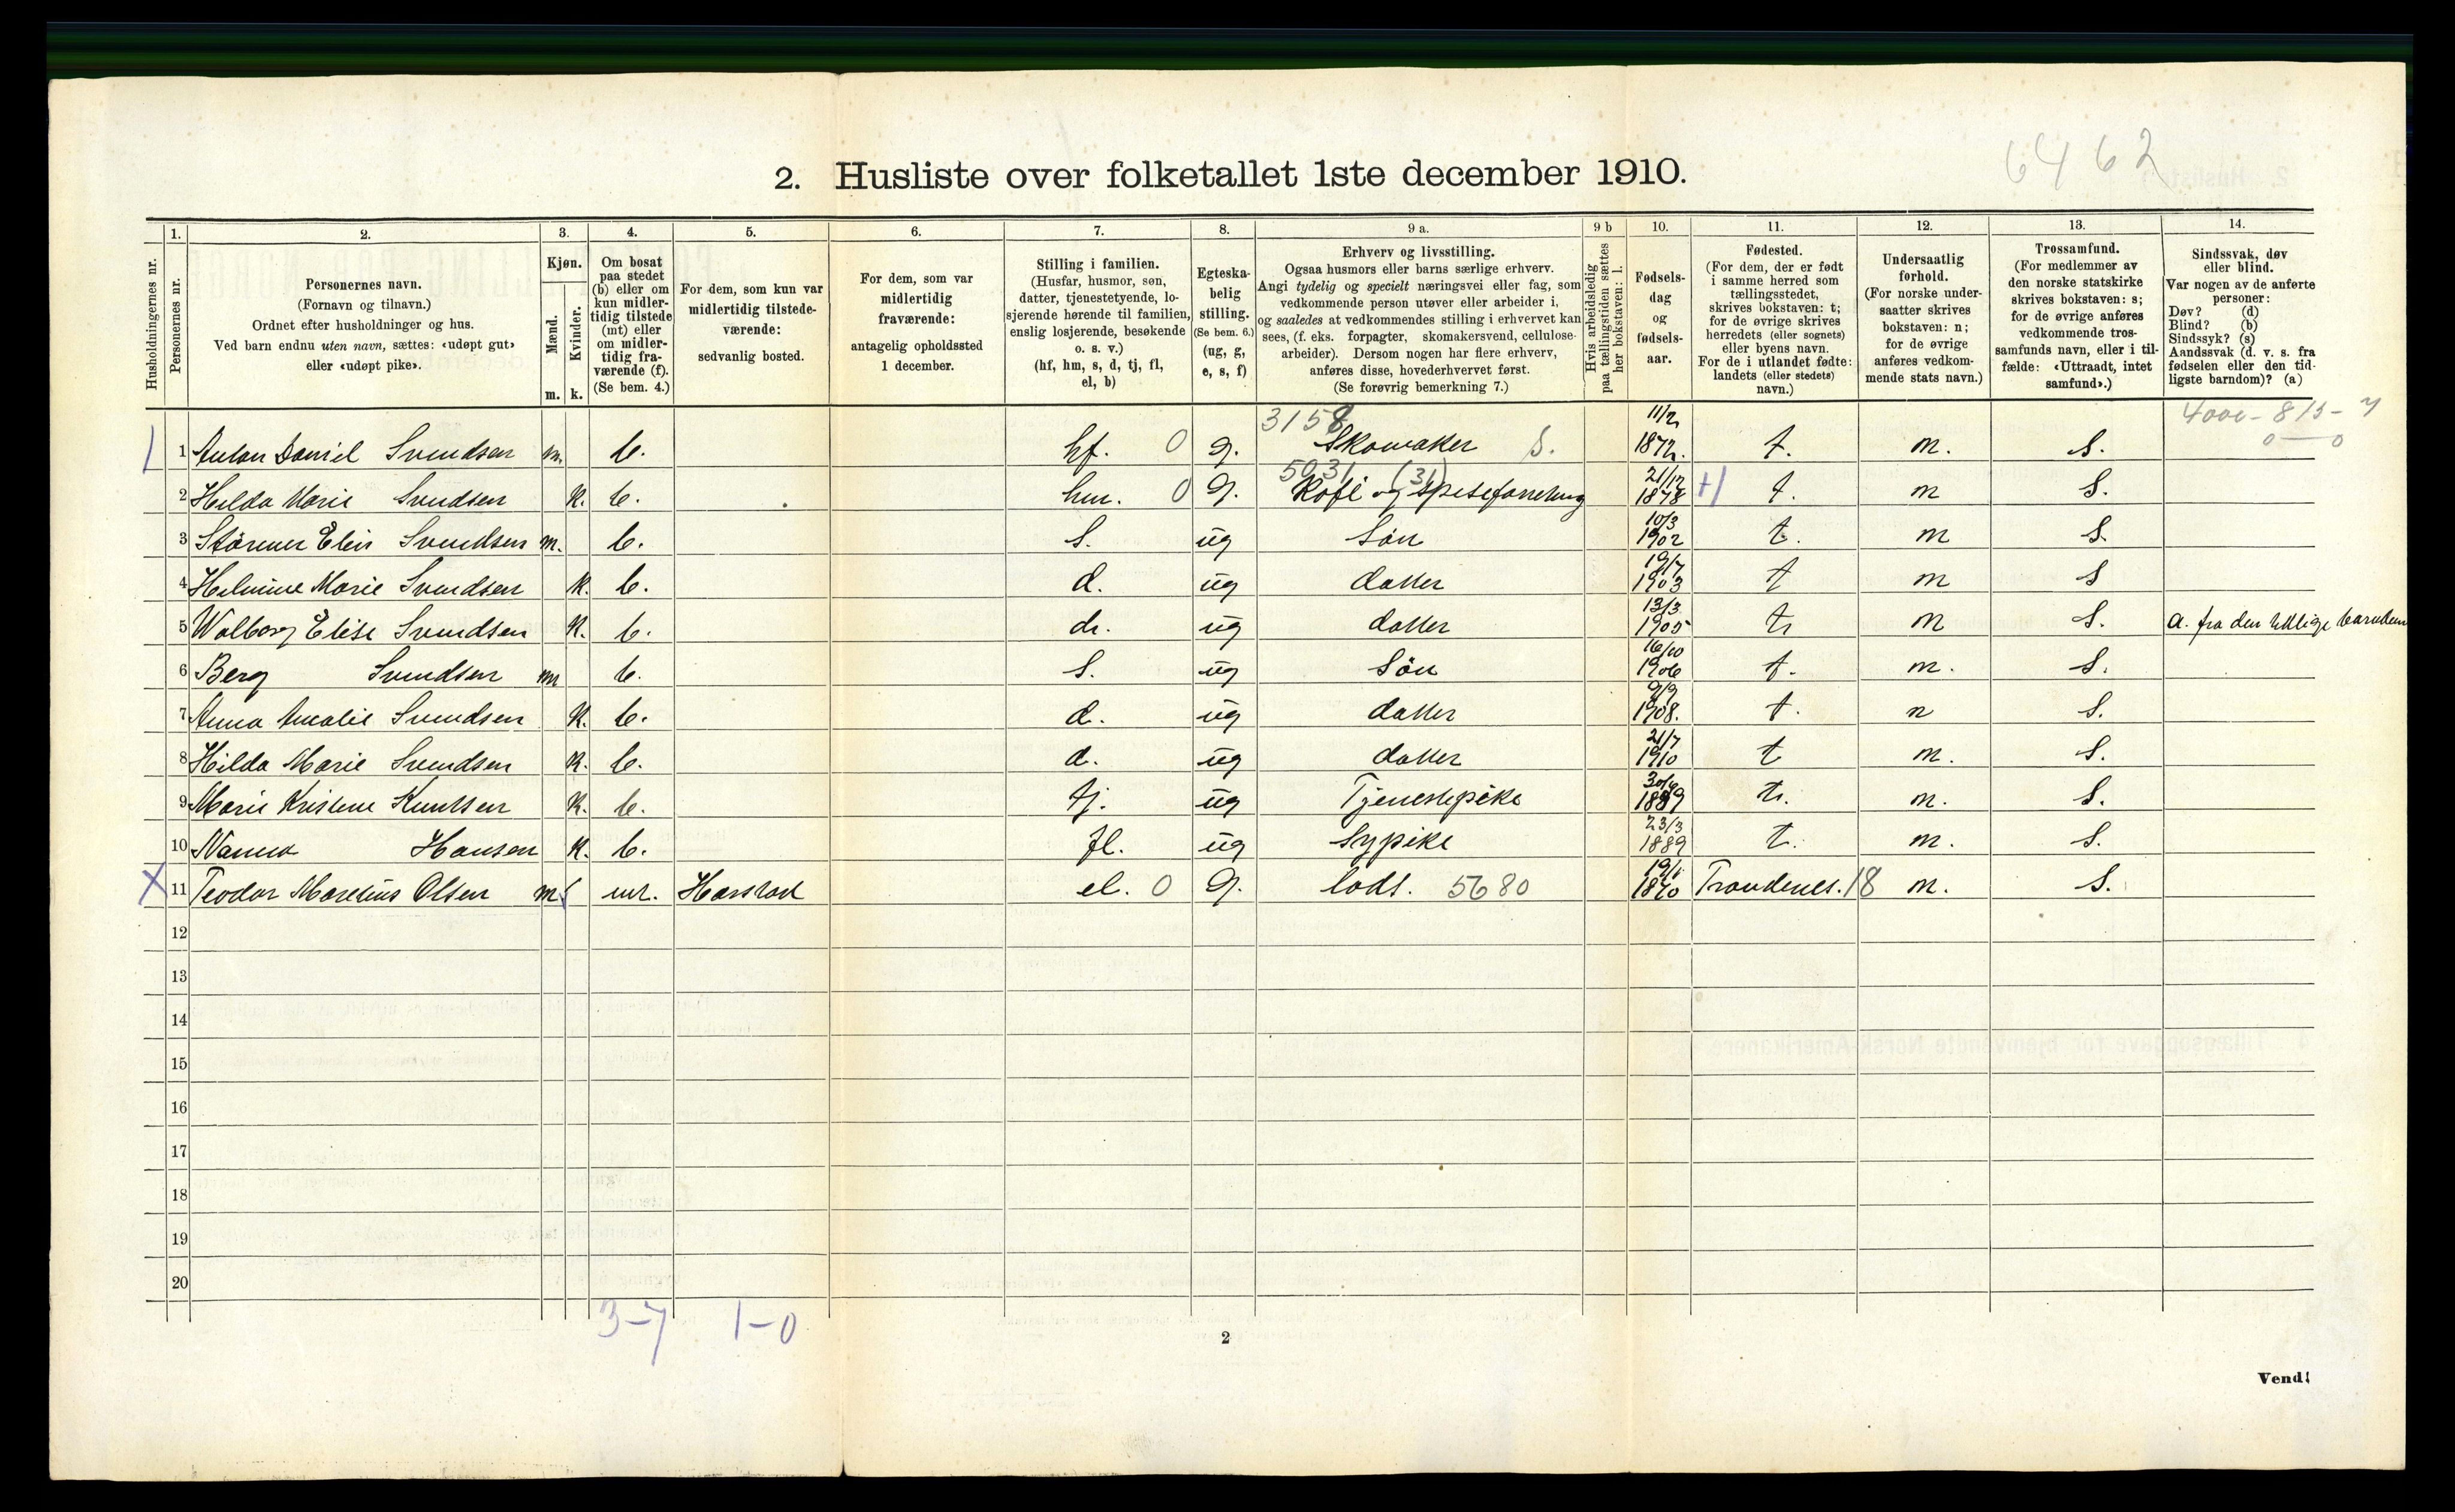 6462
2. Husliste over folketallet 1ste december 1910.
1. 2. 3. 4. 5. 6. 7. 8. 9 a. 9 b 10. 11. 12. 13. 14.
Husholdningernes nr.
Personernes nr.
Personernes navn.
(Fornavn og tilnavn.)
Ordnet efter husholdninger og hus.
Ved barn endnu uten navn, sættes: «udøpt gut»
eller «udøpt pike».
Kjøn.
Mænd.
Kvinder.
m. k.
Om bosat
paa stedet
(b) eller om
kun midler-
tidig tilstede
(mt) eller
om midler-
tidig fra-
værende (f).
(Se bem. 4.)
For dem, som kun var
midlertidig tilstede-
værende:
sedvanlig bosted.
For dem, som var
midlertidig
fraværende:
antagelig opholdssted
1 december.
Stilling i familien.
(Husfar, husmor, søn,
datter, tjenestetyende, lo-
sjerende hørende til familien,
enslig losjerende, besøkende
o. s. v.)
(hf, hm, s, d, tj, fl,
el, b)
Egteska-
belig
stilling.
(Se bem. 6.)
(ug, g,
e, s, f)
Erhverv og livsstilling.
Ogsaa husmors eller barns særlige erhverv.
Angi tydelig og specielt næringsvei eller fag, som
vedkommende person utøver eller arbeider i,
og saaledes at vedkommendes stilling i erhvervet kan
sees, (f. eks. forpagter, skomakersvend, cellulose-
arbeider). Dersom nogen har flere erhverv,
anføres disse, hovederhvervet først.
(Se forøvrig bemerkning 7.)
Hvis arbeidsledig
paa tællingstiden sættes
her bokstaven: l.
Fødsels-
dag
og
fødsels-
aar.
Fødested.
(For dem, der er født
i samme herred som
tællingsstedet,
skrives bokstaven: t;
for de øvrige skrives
herredets (eller sognets)
eller byens navn.
For de i utlandet fødte:
landets (eller stedets)
navn.)
Undersaatlig
forhold.
(For norske under-
saatter skrives
bokstaven: n;
for de øvrige
anføres vedkom-
mende stats navn.)
Trossamfund.
(For medlemmer av
den norske statskirke
skrives bokstaven: s;
for de øvrige anføres
vedkommende tros-
samfunds navn, eller i til-
fælde: «Uttraadt, intet
samfund».)
Sindssvak, døv
eller blind.
Var nogen av de anførte
personer:
Døv? (d)
Blind? (b)
Sindssyk? (s)
Aandssvak (d. v. s. fra
fødselen eller den tid-
ligste barndom)? (a)
3158 11/2 0 0
1 Anton Daniel Svendsen m. b. hf. 0 g. Skomaker S. 1872. t. n. S.
5931 (31) 21/12
2 Hilda Marie Svendsen k. b. hm. 0 g. Kafé og spiseforretning 1878 t. n S.
10/3
3 Svendsen m. b. s. ug Søn 1902 t. n S.
19/7
4 Helmine Marie Svendsen k. b. d. ug datter 1903 t n S
13/3
5 Walborg Elise Svendsen k. b. d. ug datter 1905 t n S. a. fra den tidlige barndom
16/10
6 Berg Svendsen m b. s. ug Søn 1906 t. n. S.
9/9
7 Anna Amalie Svendsen k. b. d. ug datter 1908. t. n S.
21/7
8 Hilda Marie Svendsen k. b. d. ug datter 1910 t n. S.
9 Marie Kristine Knutsen k. b. tj. ug Tjenestepike 1889 t. n. S.
23/3
10 Nanna Hansen k. b. fl. ug Sypike 1889 t. n. S.
11 Teodor Olsen m mt. Harstad el. 0 g. lods. 5680 1870 Trondenes. 18 n. S.
12
13
14
15
16
17
18
19
20
3-7 1-0
2
Vend!